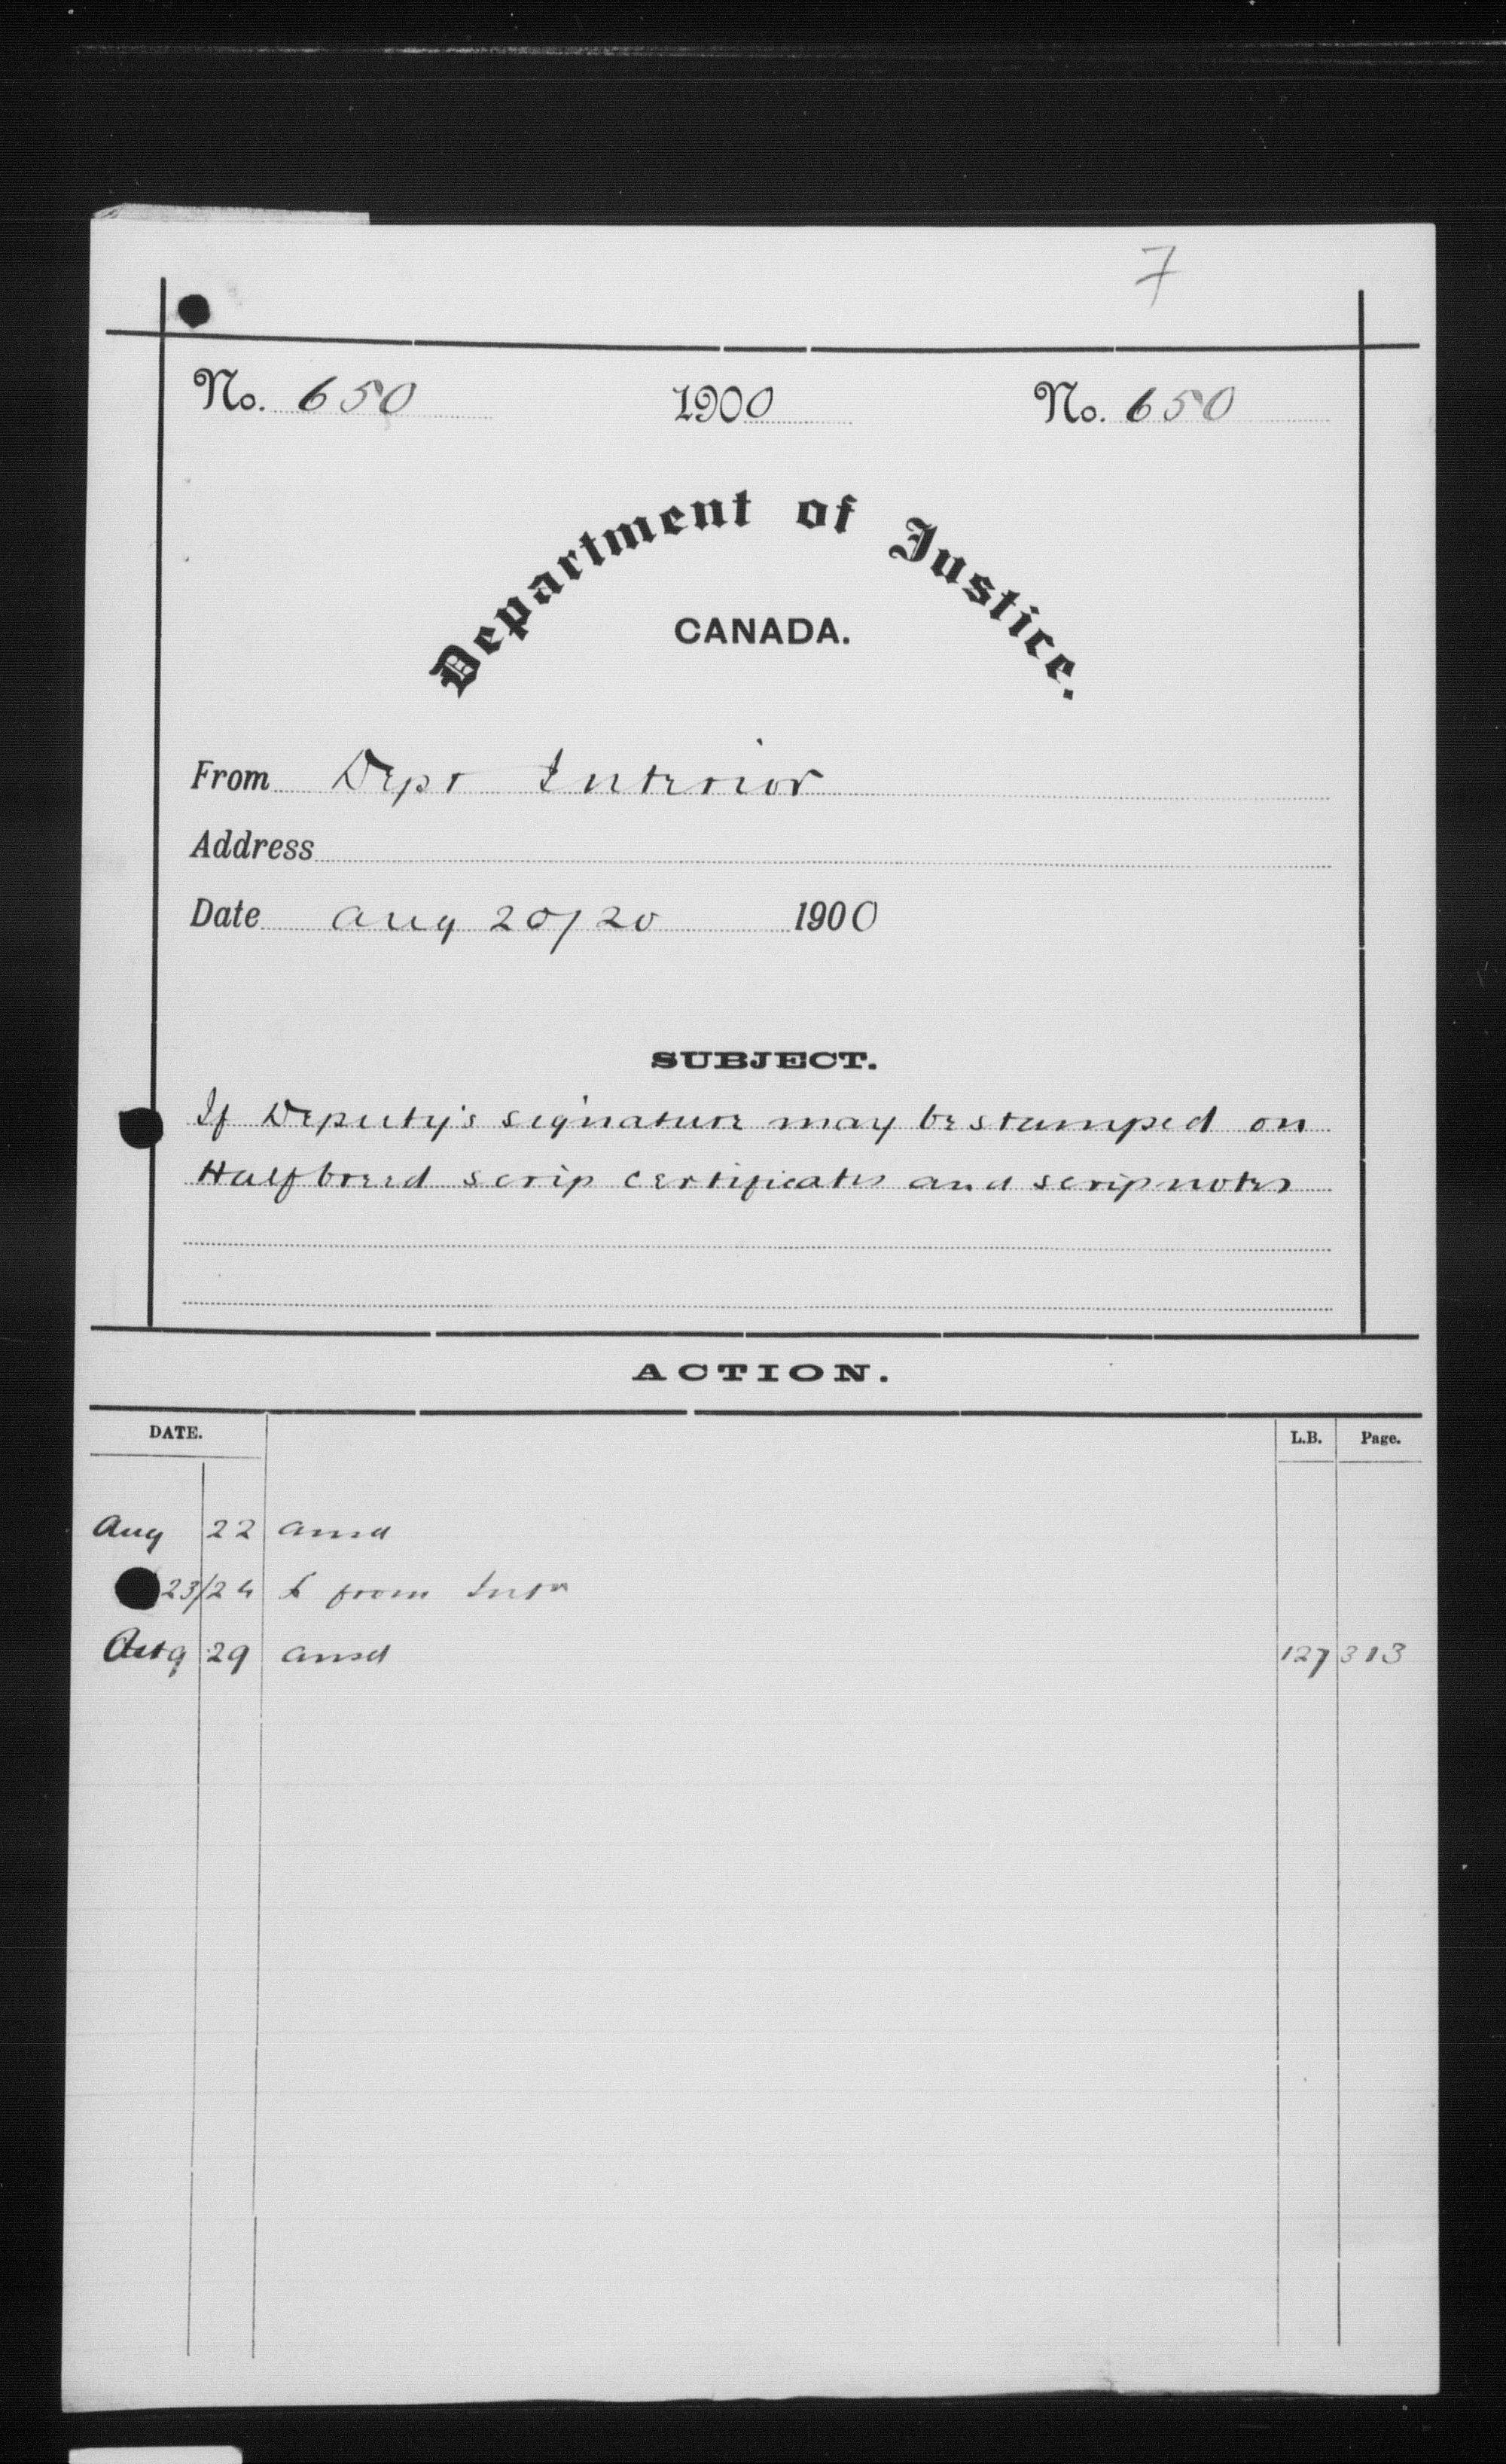 7
No. 650 1900 No. 650
Department of Justice.
CANADA.
From Dept Interior
Address
Date Aug 20/20 1900
SUBJECT.
If Deputy's signature may be stamped on
Halfbreed scrip certificates and scrip notes
ACTION.
DATE. L.B. Page.
Aug 22 ansd
23/24 L from Intr
29 ansd 127 313